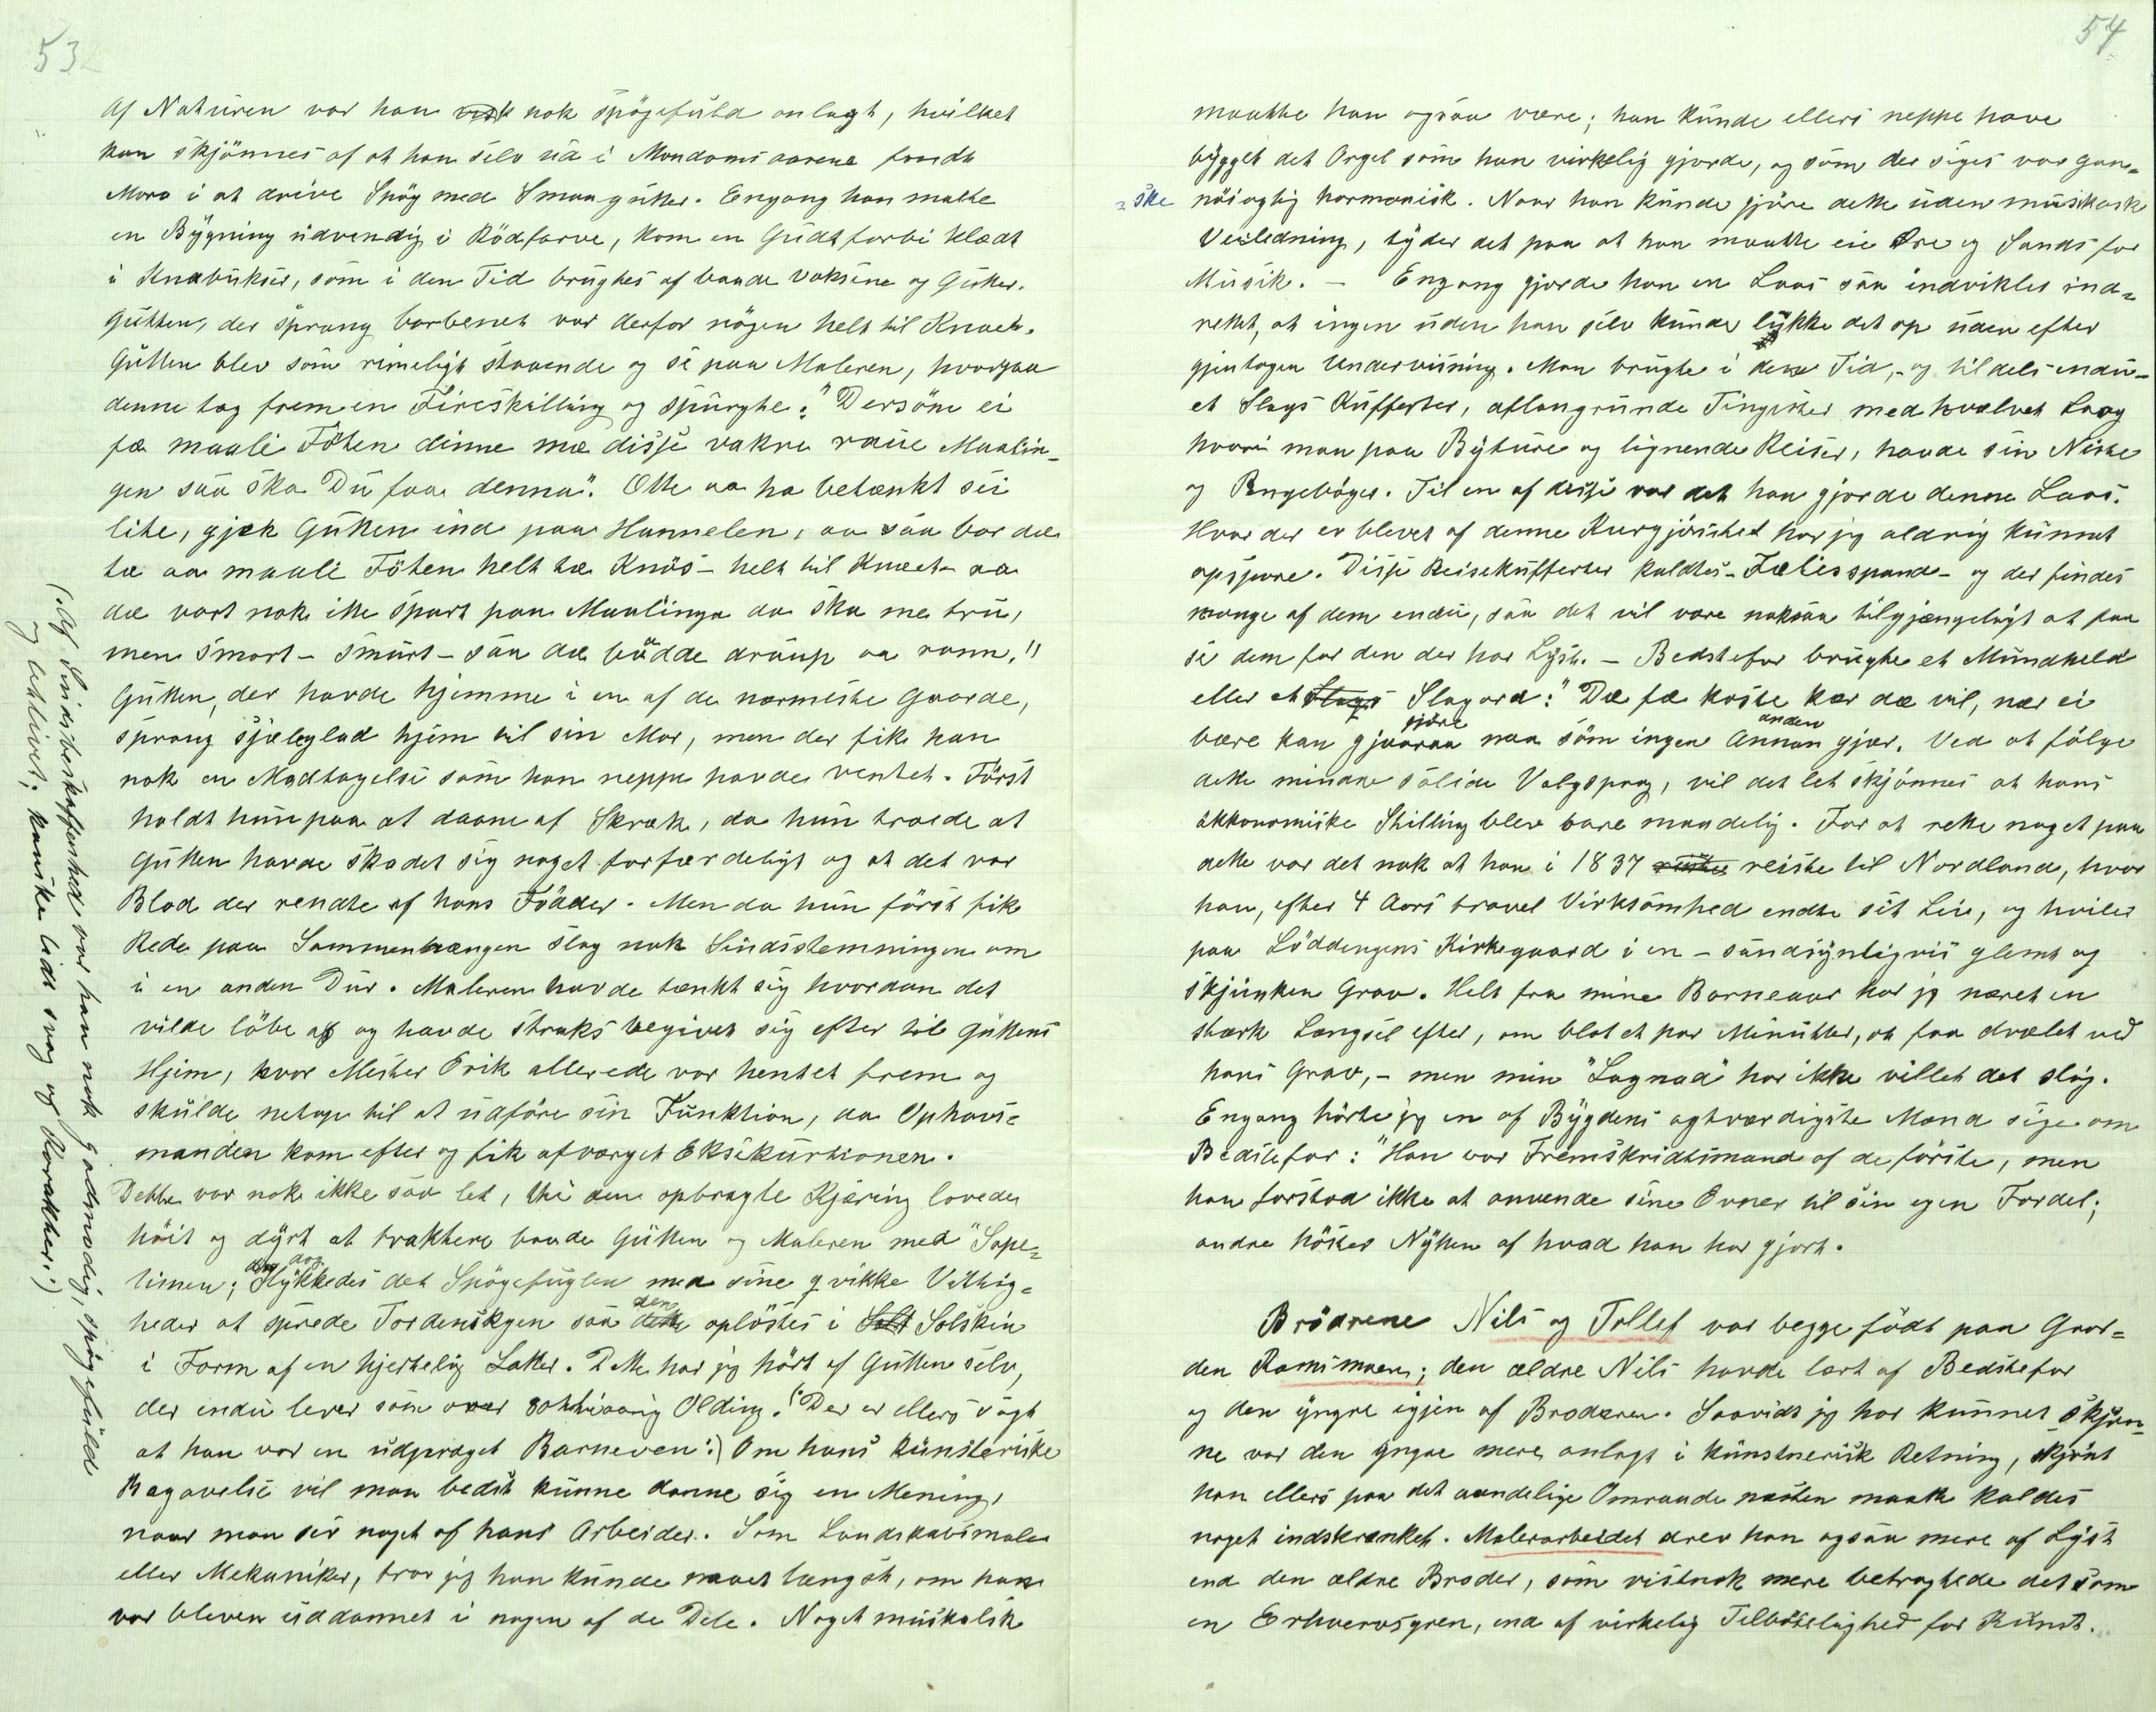 53
Af Naturen var han nok spögefuld anlagt, hvilket
kan skjönnes af at han selv ud i Mandoms aarene fandt
Moro i at drive Spög med Smaagutter. Engang han malte
en Bygning udvendig i Rödfarve, kom en Gudt forbi klædt
i Knæbukser, som i den Tid brugtes af baade voksene og Gutter.
Gutten, der sprang barbenet var derfor nögen helt til Knæet.
Gutten blev som rimeligt staaende og se paa Maleren, hvorpaa
denne tog frem en Fireskilling og spurgte: "Dersom ei
fæ maali Föten dinne mæ disse vakre raue Maalin-
gen saa ska Du faa denna". Ette aa ha betænkt sei
lite, gjek Gutten ind paa Hannelen, aa saa bar dæ
tæ aa maali Föten helt tæ Knös - helt til Knæet - aa
dæ vart nok ikke spart paa Maalinga da ska me tru,
men smort - smurt - saa dæ bådde draup aa rann."
Gutten, der havde hjemme i en af de nærmeste Gaarde,
sprang sjæleglad hjem til sin Mor, men der fik han
nok en Modtagelse som han neppe havde ventet. Först
holdt hun paa at daane af Skræk, da hun troede at
Gutten havde skadet sig noget forfærdeligt og at det var
Blod der rendte af hans Födder. Men da hun först fik
Rede paa Sammenhængen slog nok Sindsstemningen om
i en anden Dur. Maleren havde tænkt sig hvordan det
vilde löbe af og havde straks begivet sig efter til Guttens
Hjem, hvor Mester Erik allerede var hentet frem og
skulde netop til at udföre sin Funktion, da Ophavs=
manden kom efter og fik afværget Eksekurtionen.
Dette var nok ikke saa let, thi den opbragte Kjæring lovede
höit og dyrt at traktere baade Gutten og Maleren med "Sope=
limen; dog lykkedes det Spögefuglen med sine qvikke Vittig=
heder at sprede Tordenskyen saa den oplöstes i Solskin
i Form af en hjertelig Latter. Dette har jeg hört af Gutten selv,
der endu lever som over 80ttiaarig Olding. (: Der er ellers sagt
at han var en udpræget Barneven :) Om hans künsteriske
Bagavelse vil man bedst kunne danne sig en Mening,
naar man ser noget af hans Arbeider. Som Landskabsmaler
eller Mekaniker, tror jeg han kunde naaet længst, om han
var bleven uddannet i nogen af de Dele. Noget musikalsk
(: Af Sindsbeskaffenhed var han nok godmodig, spögefuld
og oplivet; kanske lidt svag og Karakter :)
54
maatte han ogsaa være; han kunde ellers neppe have
bygget det Orgel som han virkelig gjorde, og som der siges var gan=
=ske nöiagtig harmonisk. Naar han kunde gjöre dette uden musikalsk
Veiledning, tyder det paa at han maatte eie Öre og Sands for
Musik. - Engang gjorde han en Laas saa indviklet ind=
rettet, at ingen uden han selv kunde lykke det op uden efter
gjentagen Undervisning. Man brugte i den Tid, - og tildels endu -
et Slags Kufferter, aflangrunde Tingester med hvælvet Laag
hvori man paa Byture og lignende Reiser, havde sin Niste
og Pengeböger. Til en af disse var det han gjorde denne Laas.
Hvor der er blevet af denne Kurgjöished har jeg aldrig kunnet
opspore. Disse Reisekufferter kaldtes - Fælisspand - og der findes
mange af dem endu, saa det vil være noksaa tilgjængeligt at faa
se dem for den der har Lyst. - Bedstefar brugte et Mundheld
eller et Slags Slagord: "Dæ fæ koste kær dæ vil, nær ei
gjöre anden
bære kan gjaaraa naa som ingen Annan gjær. Ved at fölge
dette mindre solide Valgsprog, vil det let skjönnes at hans
økkonomiske Stilling blev bare maadelig. For at rette noget paa
dette var det nok at han i 1837 reiste til Nordland, hvor
han, efter 4 Aars travel Virksomhed endte sit Liv, og hviler
paa Löddengens Kirkegaard i en - sandsynligvis glemt og
skjunken Grav. Helt fra mine Barneaar har jeg næret en
stærk Længsel efter, om blot et par Minutter, at faa dvælet ved
hans Grav, - men min "Lagnad" har ikke villet det slig.
Engang hörte jeg en af Bygdens agtværdigste Mænd sige om
Bedstefar: "Han var Fremskridtsmand af de förste, men
han forstod ikke at anvende sine Evner til sin egen Fordel;
andre höster Nytten af hvad han har gjort.
Brödrene Nils og Tollef var begge födt paa Gaar=
den Ramsmoen; den ældre Nils havde lært af Bedstefar
og den yngre igjen af Broderen. Saavidt jeg har kunnet skjön=
ne var den yngre mere anlagt i künstnerisk Retning, skjönt
han ellers paa det aandelige Omraade næsten maatte kaldes
noget indskrænket. Malerarbeidet drev han ogsaa mere af Lyst
end den ældre Broder, som vistnok mere betragtede det som
en Erhvervsgren, end af virkelig Tilböielighed for Kunst.